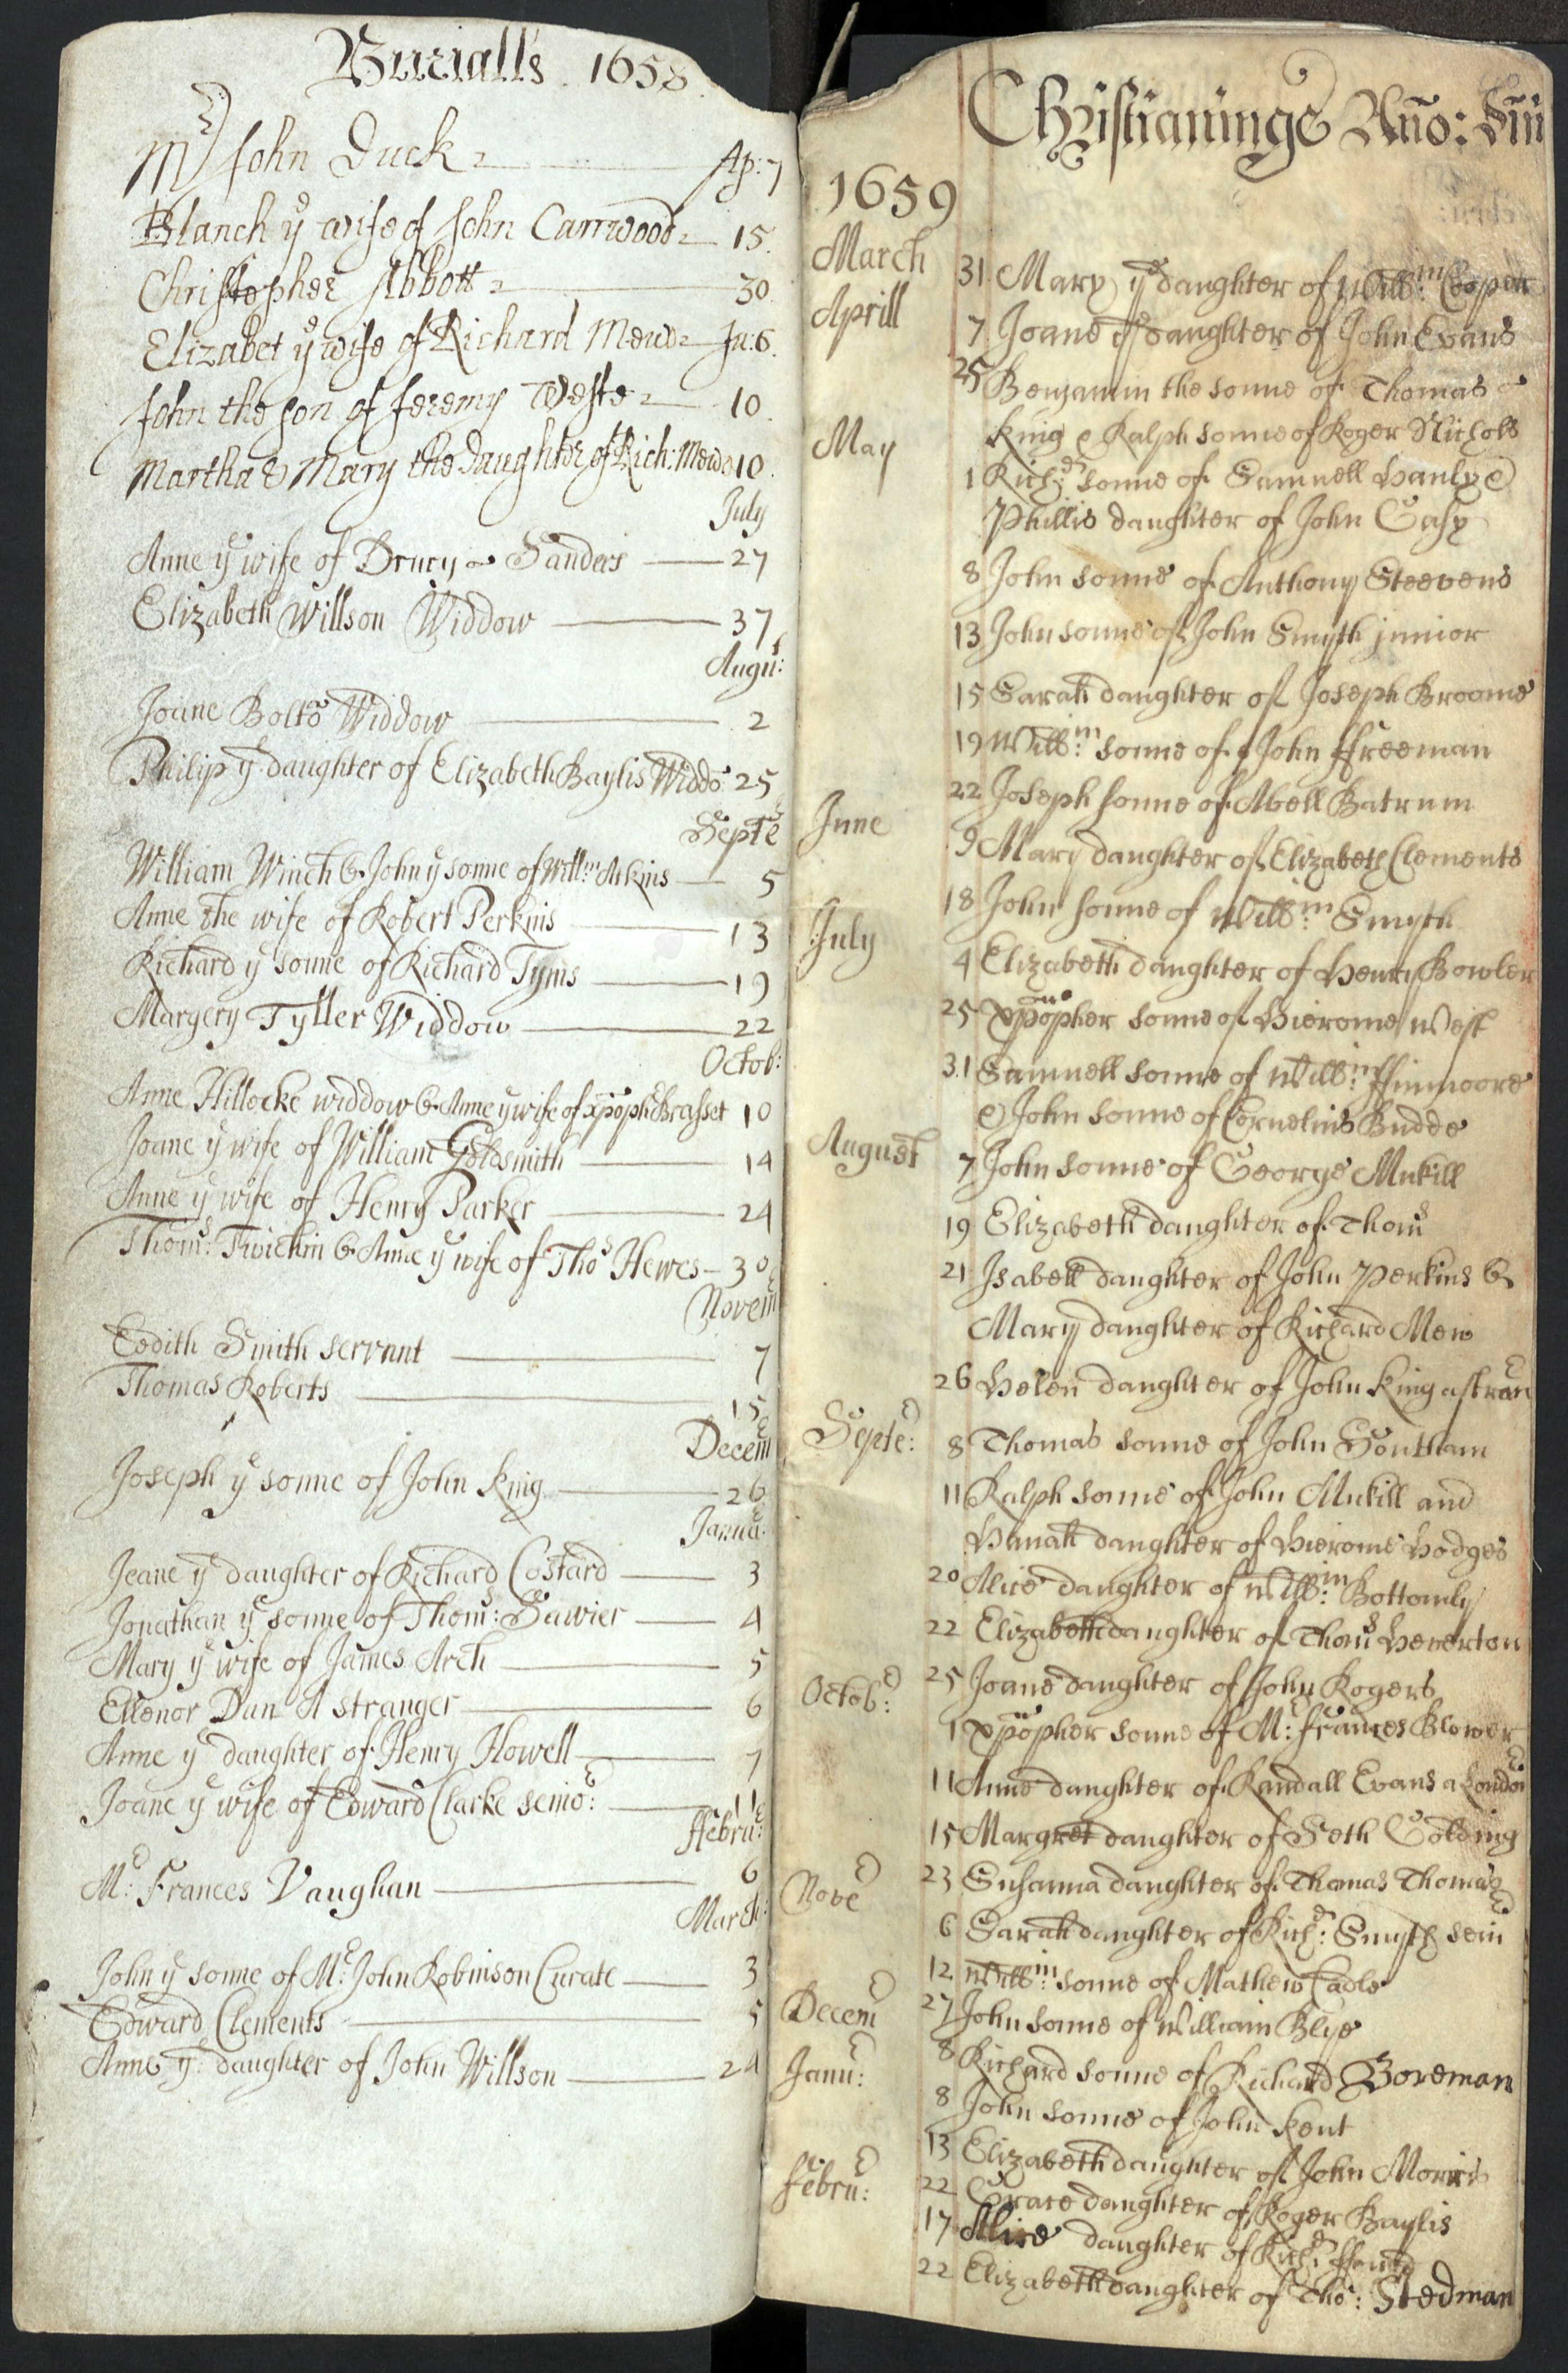 Burialls . 1658
Mr John Duck Ap: 7
Blanch ye wife of John Carrwood 15
Christopher Abbott 30
Elizabet ye wife of Richard Mewe Ju: 6
John the son of Jeremy Weste 10
Martha & Mary the Daughter of Rich: Mewe 10
July
Anne ye wife of Drury Sanders 27
Elizabeth Willson Widdow 37
Augu:
Joane Bolto Widdow 2
Philip ye daughter of Elizabeth Baylis Widdo 25
Septe
William Winch & John ye sonne of Willm: Atkins 5
Anne the wife of Robert Perkins 13
Richard ye sonne of Richard Tyms 19
Margery Tyller Widdow 22
Octob:
Anne Hillocke widdow & Anne ye wife of xpoph Brasset 10
Joane ye wife of William Goldsmith 14
Anne ye wife of Henry Parker 24
Thom: Twichin & Anne ye wife of Thos Hewes 30
Novem
Eedith Smith servant 7
Thomas Roberts 15
Decem
Joseph ye sonne of John King 26
Janua:
Jeane ye daughter of Richard Costard 3
Jonathan ye sonne of Thoms: Sawier 4
Mary ye wife of James Arch 5
Ellenor Dan A stranger 6
Anne ye daughter of Henry Howell 7
Joane ye wife of Edward Clarke senio: 11
ffebru:
M: Frances Vaughan 6
March:
John ye sonne of Mr: John Robinson Curate 3
Edward Clements 5
Anne ye daughter of John Willson 24
Christianings Año:
1659
March 31 Mary ye daughter of Willm: Cooper
Aprill 7 Joane ye daughter of John Evans
25 Benjamin the sonne of Thomas
King & Ralph sonne of Roger Nichols
May 1 Richd: sonne of Samuell Hanly &
Phillis daughter of John Casy
8 John sonne of Anthony Steevens
13 John sonne of John Smyth junior
15 Sarah daughter of Joseph Broome
19 Willm: sonne of John ffreeman
22 Joseph sonne of Abell Batrum
June 9 Mary daughter of Elizabeth Clements
18 John sonne of Willm: Smyth
July 4 Elizabeth daughter of Henry Bowler
25 xpopher sonne of Hierome West
31 Samuell sonne of Willm: ffinmoore
& John sonne of Cornelius Budde
August 7 John sonne of George Mukill
19 Elizabeth daughter of Thoms
21 Isabell daughter of John Perkins &
Mary daughter of Richard Mew
26 Helen daughter of John King a stran
Septe: 8 Thomas sonne of John Southam
11 Ralph sonne of John Mukill and
Hanah daughter of Hierome Hodges
20 Alice daughter of Willm: Bottomly
22 Elizabeth daughter of Thoms Heverton
25 Joane daughter of John Rogers
Octob: 1 xpopher sonne of Mr: frances Blower
11 Anne daughter of Randall Evans a Londo
15 Margret daughter of Seth Golding
23 Susanna daughter of Thomas Thomas
Nove 6 Sarah daughter of Richd: Smyth sen
12 Willm: sonne of Mathew Cadle
27 John sonne of William Blye
Decem 8 Richard sonne of Richard Boreman
Janu: 8 John sonne of John Kent
13 Elizabeth daughter of John Morris
22 Grace daughter of Roger Baylis
Febru: 17 Alice daughter of Richd:
22 Elizabeth daughter of Tho: Stedman